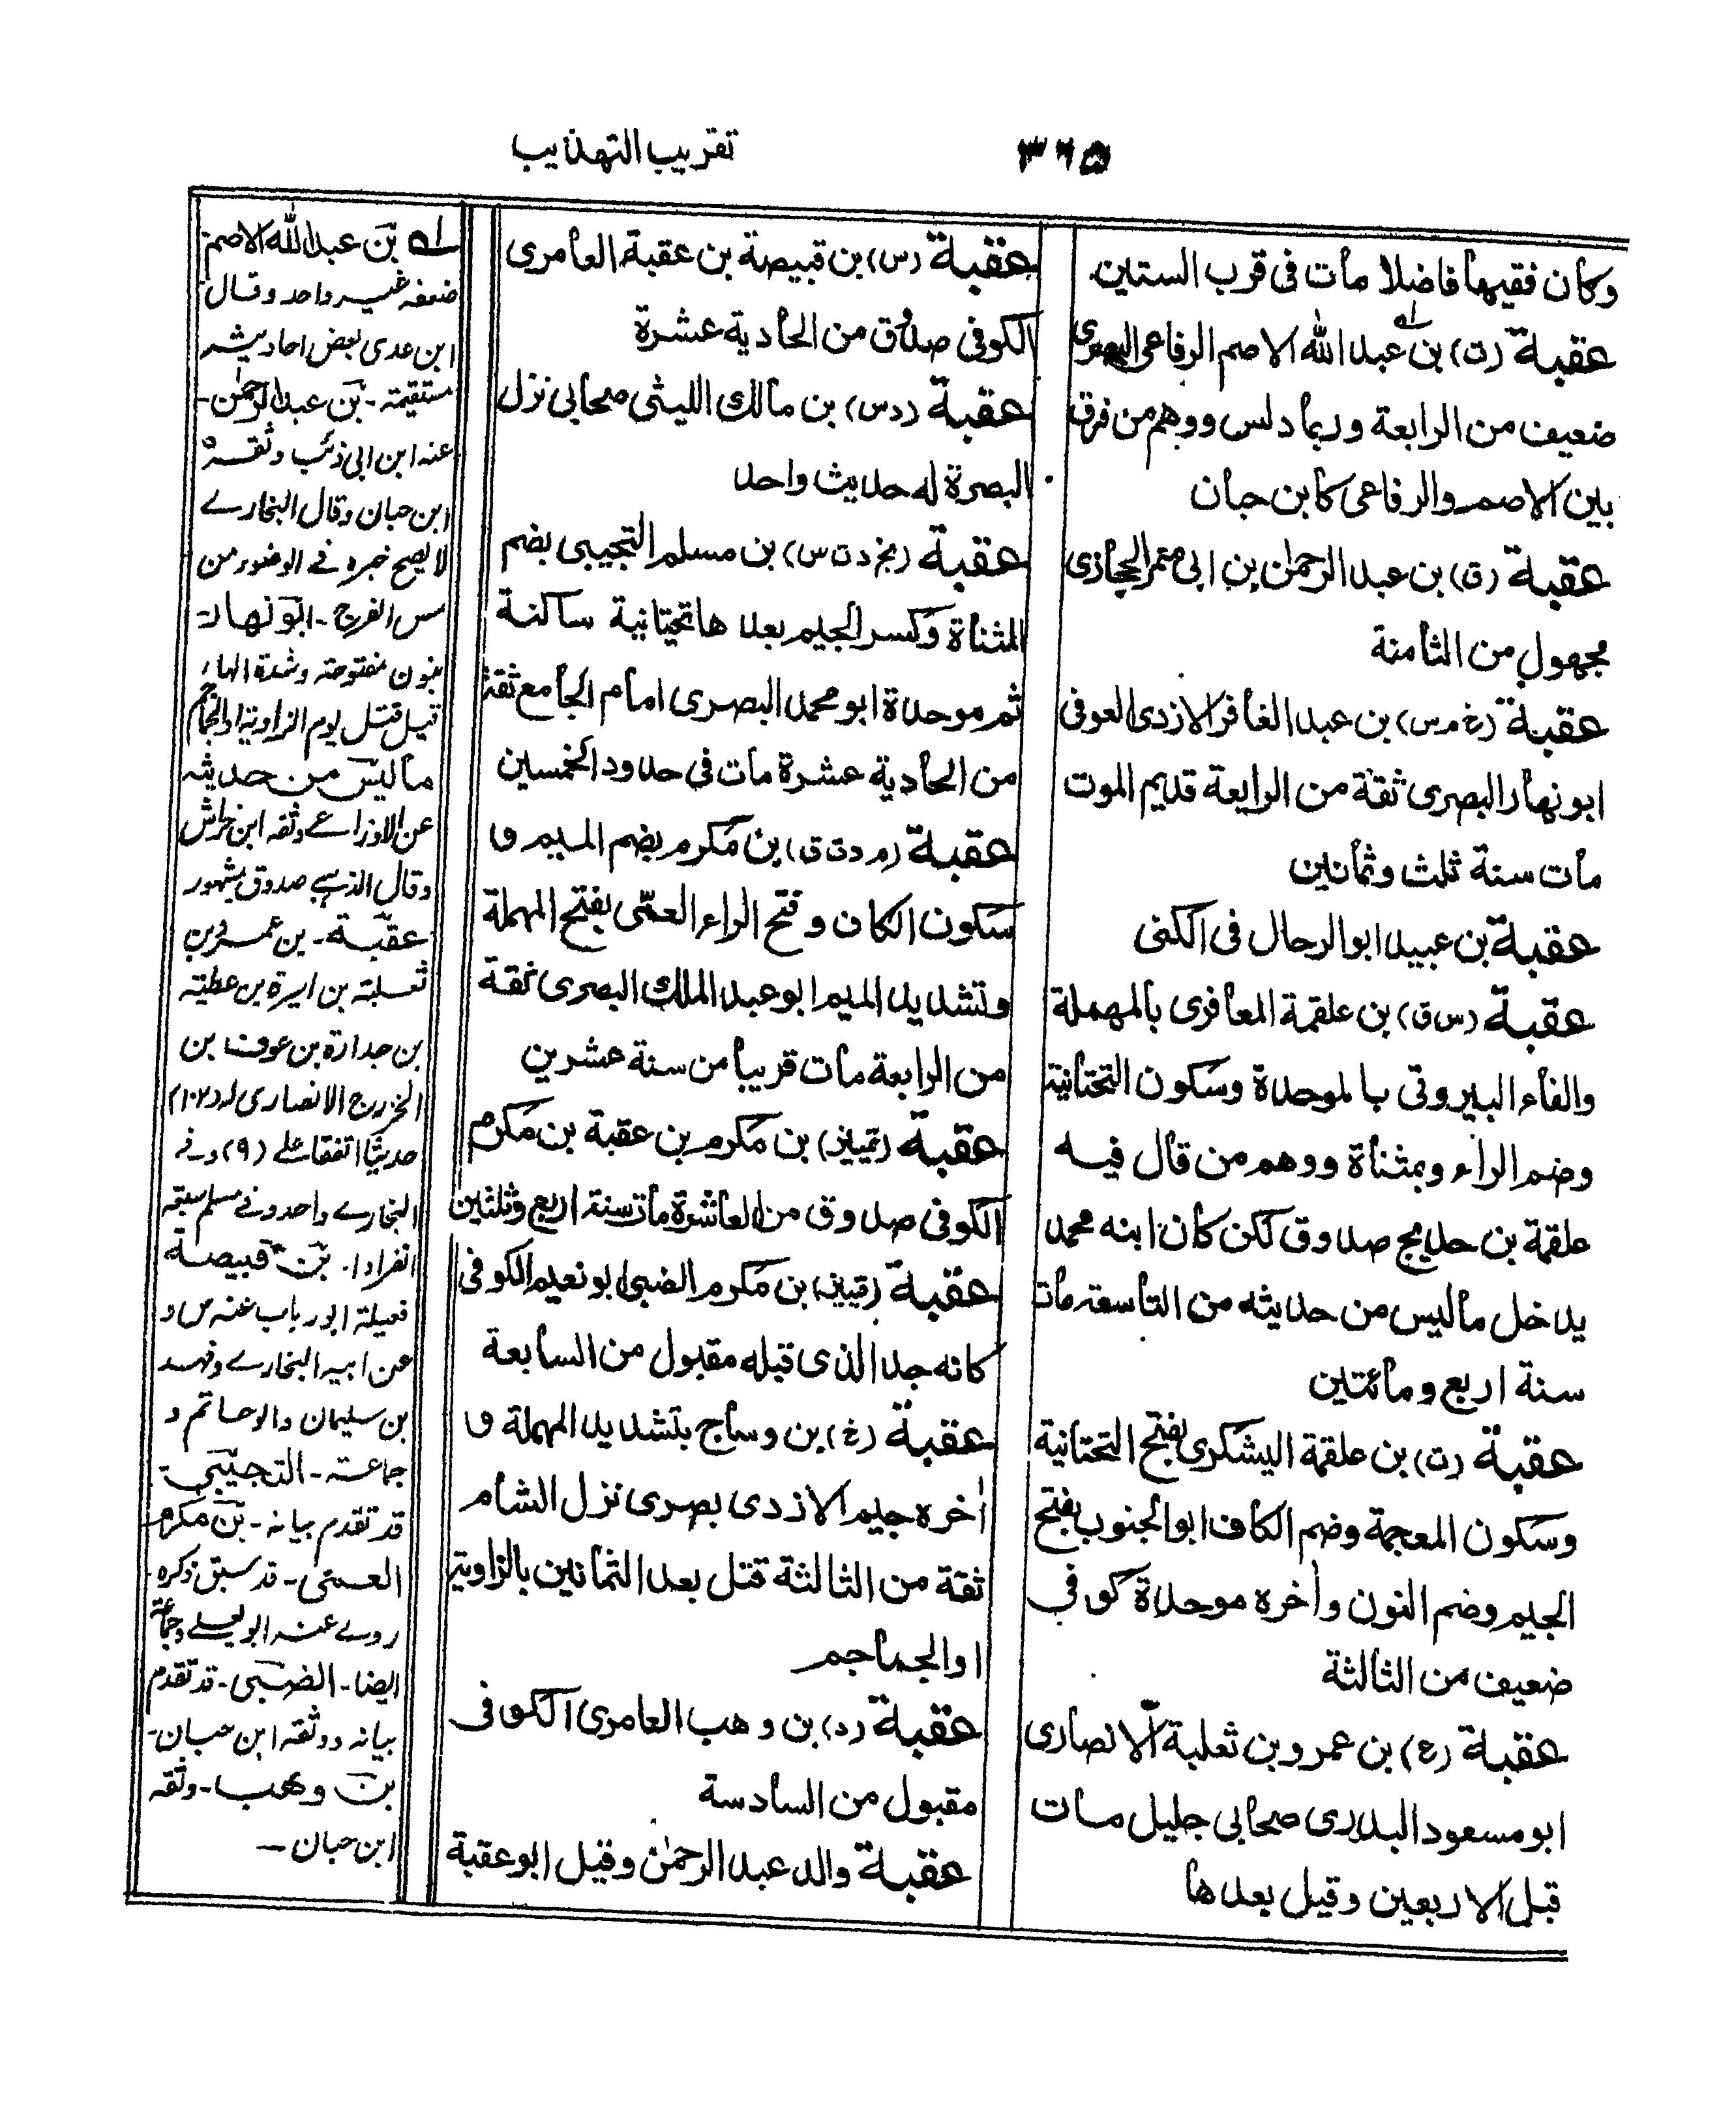 ٣٦٥
تقريب التهذيب
وكان فقيها فاضلا مات فى قرب الستين
عقبة (ت) بن عبد الله الاصم الرفاعى البصرى
ضعيف من الرابعة وربما دلس ووهم من فرق
بين الاصم والرفاعى كابن حبان
عقبة (ق) بن عبد الرحمٰن بن ابى معمر الحجازى
مجهول من الثامنة
عقبة (خ م س) بن عبد الغافر الازدى العوفى
ابو نهار البصرى ثقة من الرابعة قديم الموت
مات سنة ثلث وثمانين
عقبة بن عبيد ابو الرحال فى الكنى
عقبة (س ق) بن علقمة المعافرى بالمهملة
والفاء البيروتى بالموحدة وسكون التحتانية
وضم الراء وبمثناة ووهم من قال فيه
علقمة بن حديج صدوق لكن كان ابنه محمد
يدخل ماليس من حديثه من التاسعة مات
سنة اربع ومائتين
عقبة (ت) بن علقمة اليشكرى بفتح التحتانية
وسكون المعجمة وضم الكاف ابو الجنوب بفتح
الجيم وضم النون وأخره موحدة كوفى
ضعيف من الثالثة
عقبة (ع) بن عمرو بن ثعلبة الانصارى
ابو مسعود البدرى صحابى جليل مات
قبل الاربعين وقيل بعدها
عقبة (س) بن قبيصة بن عقبة العامرى
الكوفى صدوق من الحادية عشرة
عقبة (د س) بن مالك الليثى صحابى نزل
البصرة له حديث واحد
عقبة (بخ د ت س) بن مسلم التجيبى بضم
المثناة وكسر الجيم بعدها تحتانية ساكنة
ثم موحدة ابو محمد البصرى امام الجامع ثقة
من الحادية عشرة مات فى حدود الخمسين
عقبة (م د ت ق) بن مكرم بضم الميم و
سكون الكاف وفتح الراء العمّى بفتح المهملة
وتشديد الميم ابو عبد الملك البصرى ثقة
من الرابعة مات قريبا من سنة عشرين
عقبة (تمييز) بن مكرم بن عقبة بن مكرم
الكوفى صدوق من العاشرة مات سنة اربع وثلثين
عقبة (تمييز) بن مكرم الضبى ابو نعيم الكوفى
كانه جد الذى قبله مقبول من السابعة
عقبة (خ) بن وساج بتشديد المهملة و
أخره جيم الازدى بصرى نزل الشام
ثقة من الثالثة قتل بعد الثمانين بالزاوية
او الجماجم
عقبة (د) بن وهب العامرى الكوفى
مقبول من السادسة
عقبة والد عبد الرحمٰن وقيل ابو عقبة
له بن عبد الله الاصم
ضعفه غير واحد وقال
ابن عدى بعض احاديثه
مستقيمة - بن عبد الرحمٰن -
عنه ابن ابى ذئب وثقه
ابن حبان وقال البخارے
لا يصح خبره فے الوضوء من
مس الفرج - ابو نهار
بنون مفتوحة وشدة الهاء
قيل قتل يوم الزاوية او الجماجم
ماليس من حديثه
عن الاوزاعے وثقه ابن خراش
وقال الذہبے صدوق مشهور
عقبة - بن عمرو بن
ثعلبة بن اسيرة بن عطية
بن جدارة بن عوف بن
الخزرج الانصارى له (١٠٢)
حديثا اتفقا علے (٩) وفے
البخارے واحد وفے مسلم سبعة
انفرادا. بن قبيصة
عنه س و
عن ابيه البخارے
بن سليمان وابو حاتم و
جماعة - التجيبى -
قد تقدم بيانه - بن مكرم
العمى - قد سبق ذكره
روے عنه ابو يعلے وجماعة
ايضا - الضبى - قد تقدم
بيانه ووثقه ابن حبان -
بن وهب - وثقه
ابن حبان -